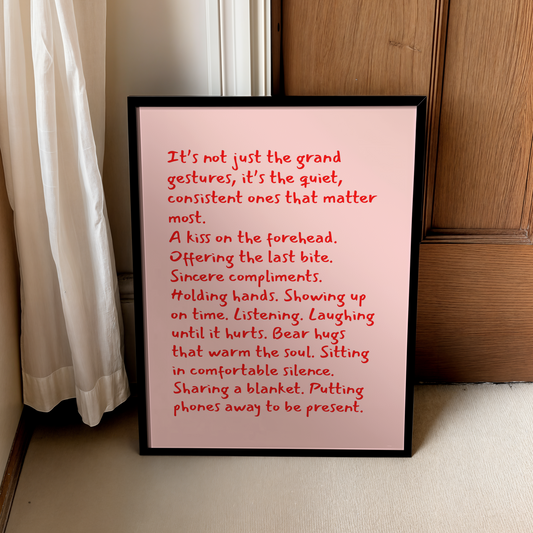 It's not just the grand
gestures, it's the quiet,
consistent ones that matter
most.
A kiss on the forehead.
Offering the last bite.
Sincere compliments.
Holding hands. Showing up
on time. Listening. Laughing
until it hurts. Bear hugs
that warm the soul. Sitting
in comfortable silence.
Sharing a blanket. Putting
phones away to be present.